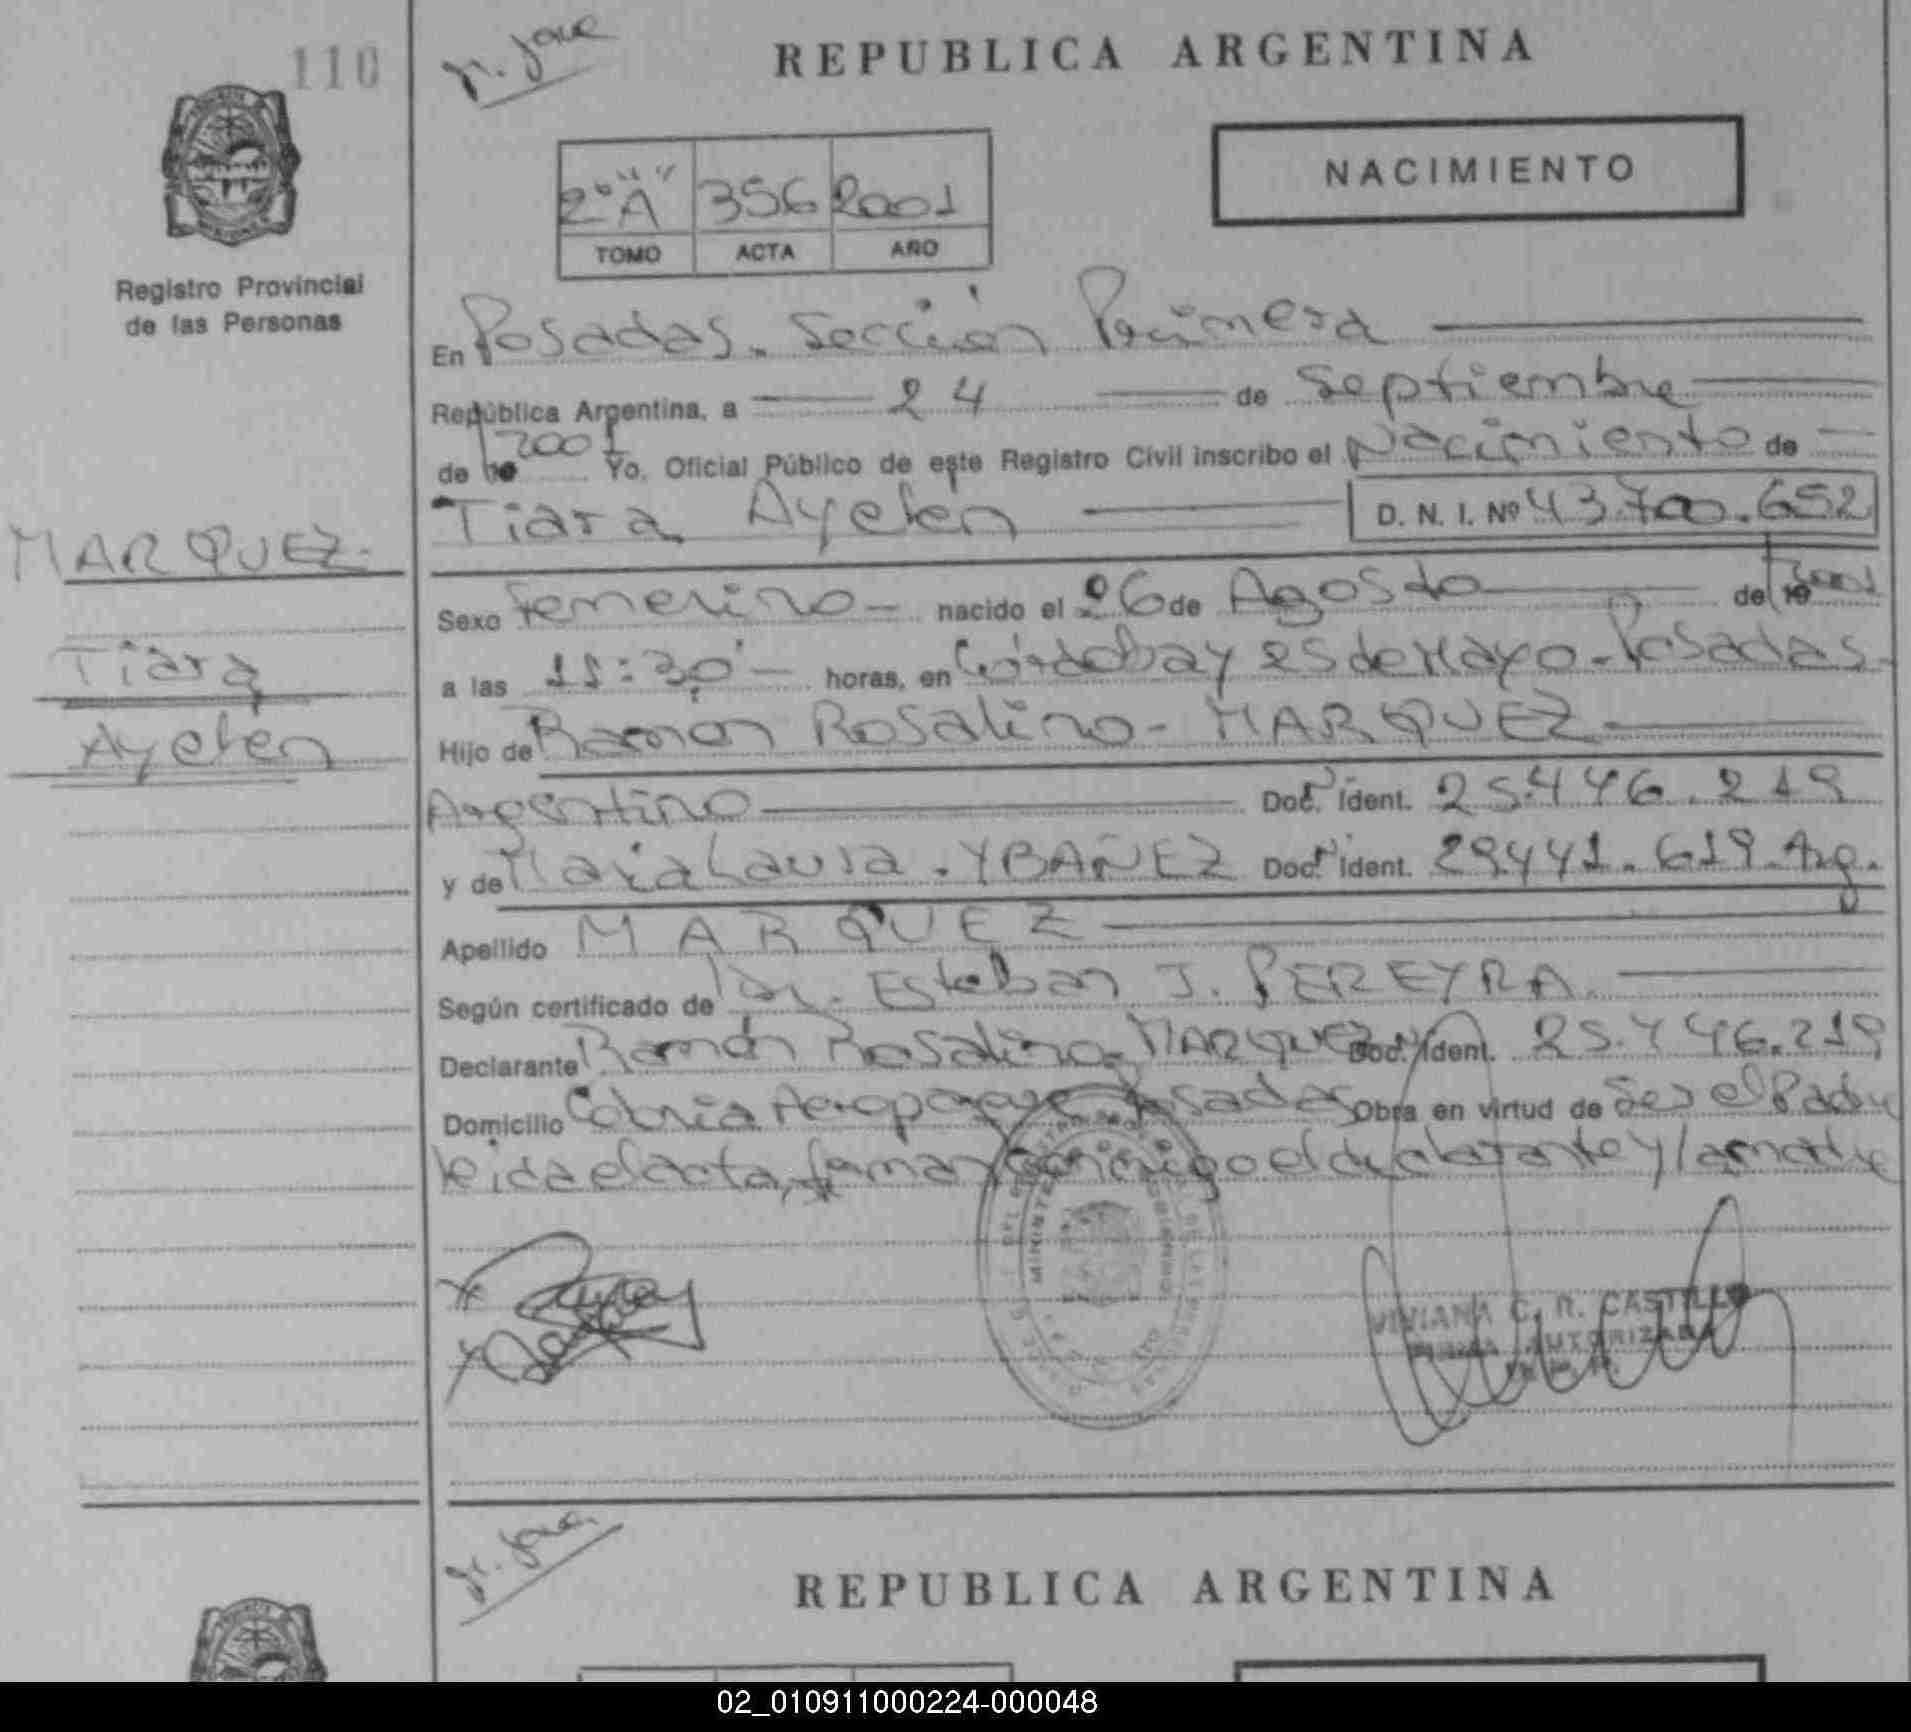 110
Jr. Jove
REPUBLICA ARGENTINA
NACIMIENTO
2º "A" 356 2001
TOMO ACTA AÑO
Registro Provincial
de las Personas
En Posadas. Sección Primera
República Argentina, a 24 de Septiembre
de 19 2001 Yo, Oficial Público de este Registro Civil inscribo el Nacimiento de
Tiara Ayelén D. N. I. Nº 43.700.652
MARQUEZ
Sexo femenino nacido el 26 de Agosto de 19 2001
Tiara
a las 11:30 horas, en Córdoba y 25 de Mayo - Posadas
Ayelén
Hijo de Ramón Rosalino - MARQUEZ
Argentino Doc. Ident. 25.446.219
y de Maria Laura . YBAÑEZ Doc. Ident. 29.441.619 Arg.
Apellido MARQUEZ
Según certificado de Dr. Esteban J. PEREYRA
Declarante Ramón Rosalino MARQUEZ Doc. Ident. 25.446.219
Domicilio Colonia Aeroparque Posadas Obra en virtud de Ser el Padre
leida el acta, firman conmigo el declarante y la madre
VIVIANA C. R. CASTILLO
FIRMA AUTORIZADA
REPUBLICA ARGENTINA
02_010911000224-000048